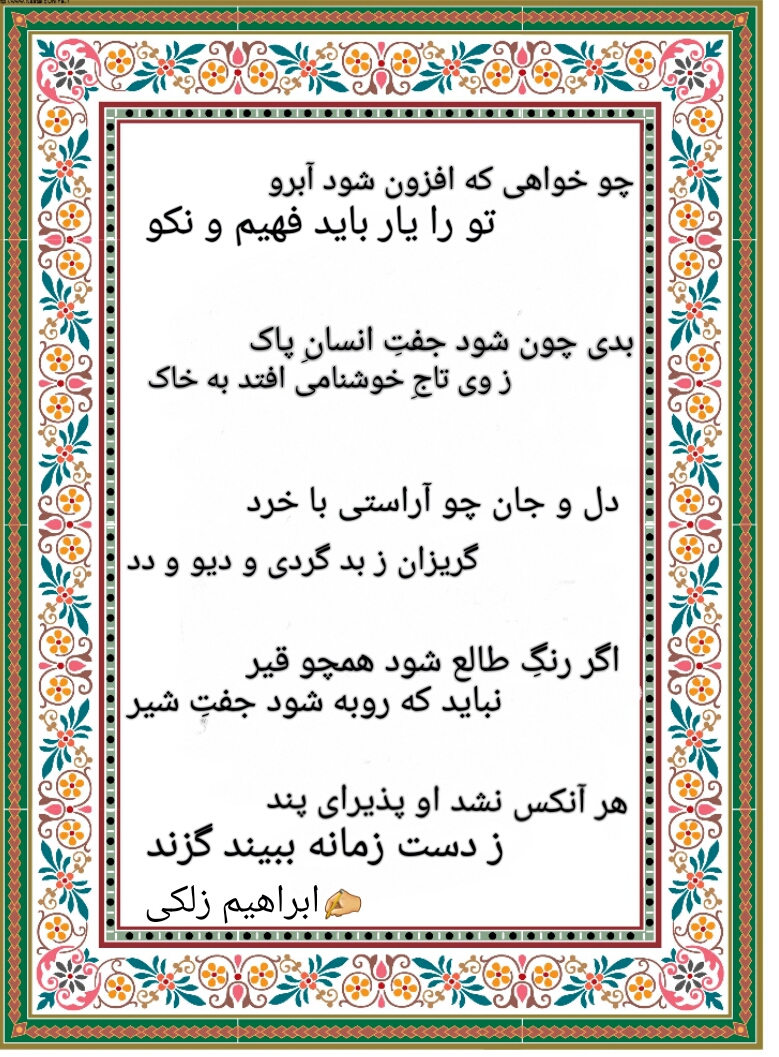 چو خواهی که افزون شود آبرو
تو را یار باید فهیم و نکو
بدی چون شود جفتِ انسانِ پاک
ز وی تاجِ خوشنامی افتد به خاک
دل و جان چو آراستی با خرد
گریزان ز بد گردی و دیو و دد
اگر رنگِ طالع شود همچو قیر
نباید که روبه شود جفتِ شیر
هر آنکس نشد او پذیرای پند
ز دست زمانه ببیند گزند
✍ابراهیم زلکی